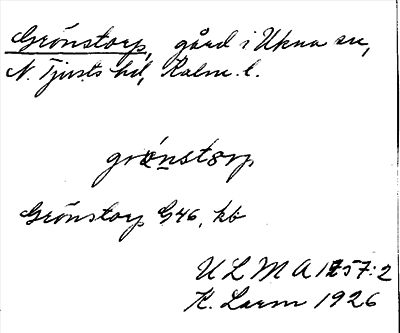 Grönstorp, gård i Ukna sn,
N. Tjusts hd, Kalm. l.
grönstorp
Grönstorp G46, kb
ULMA 1257:2
K. Larm 1926